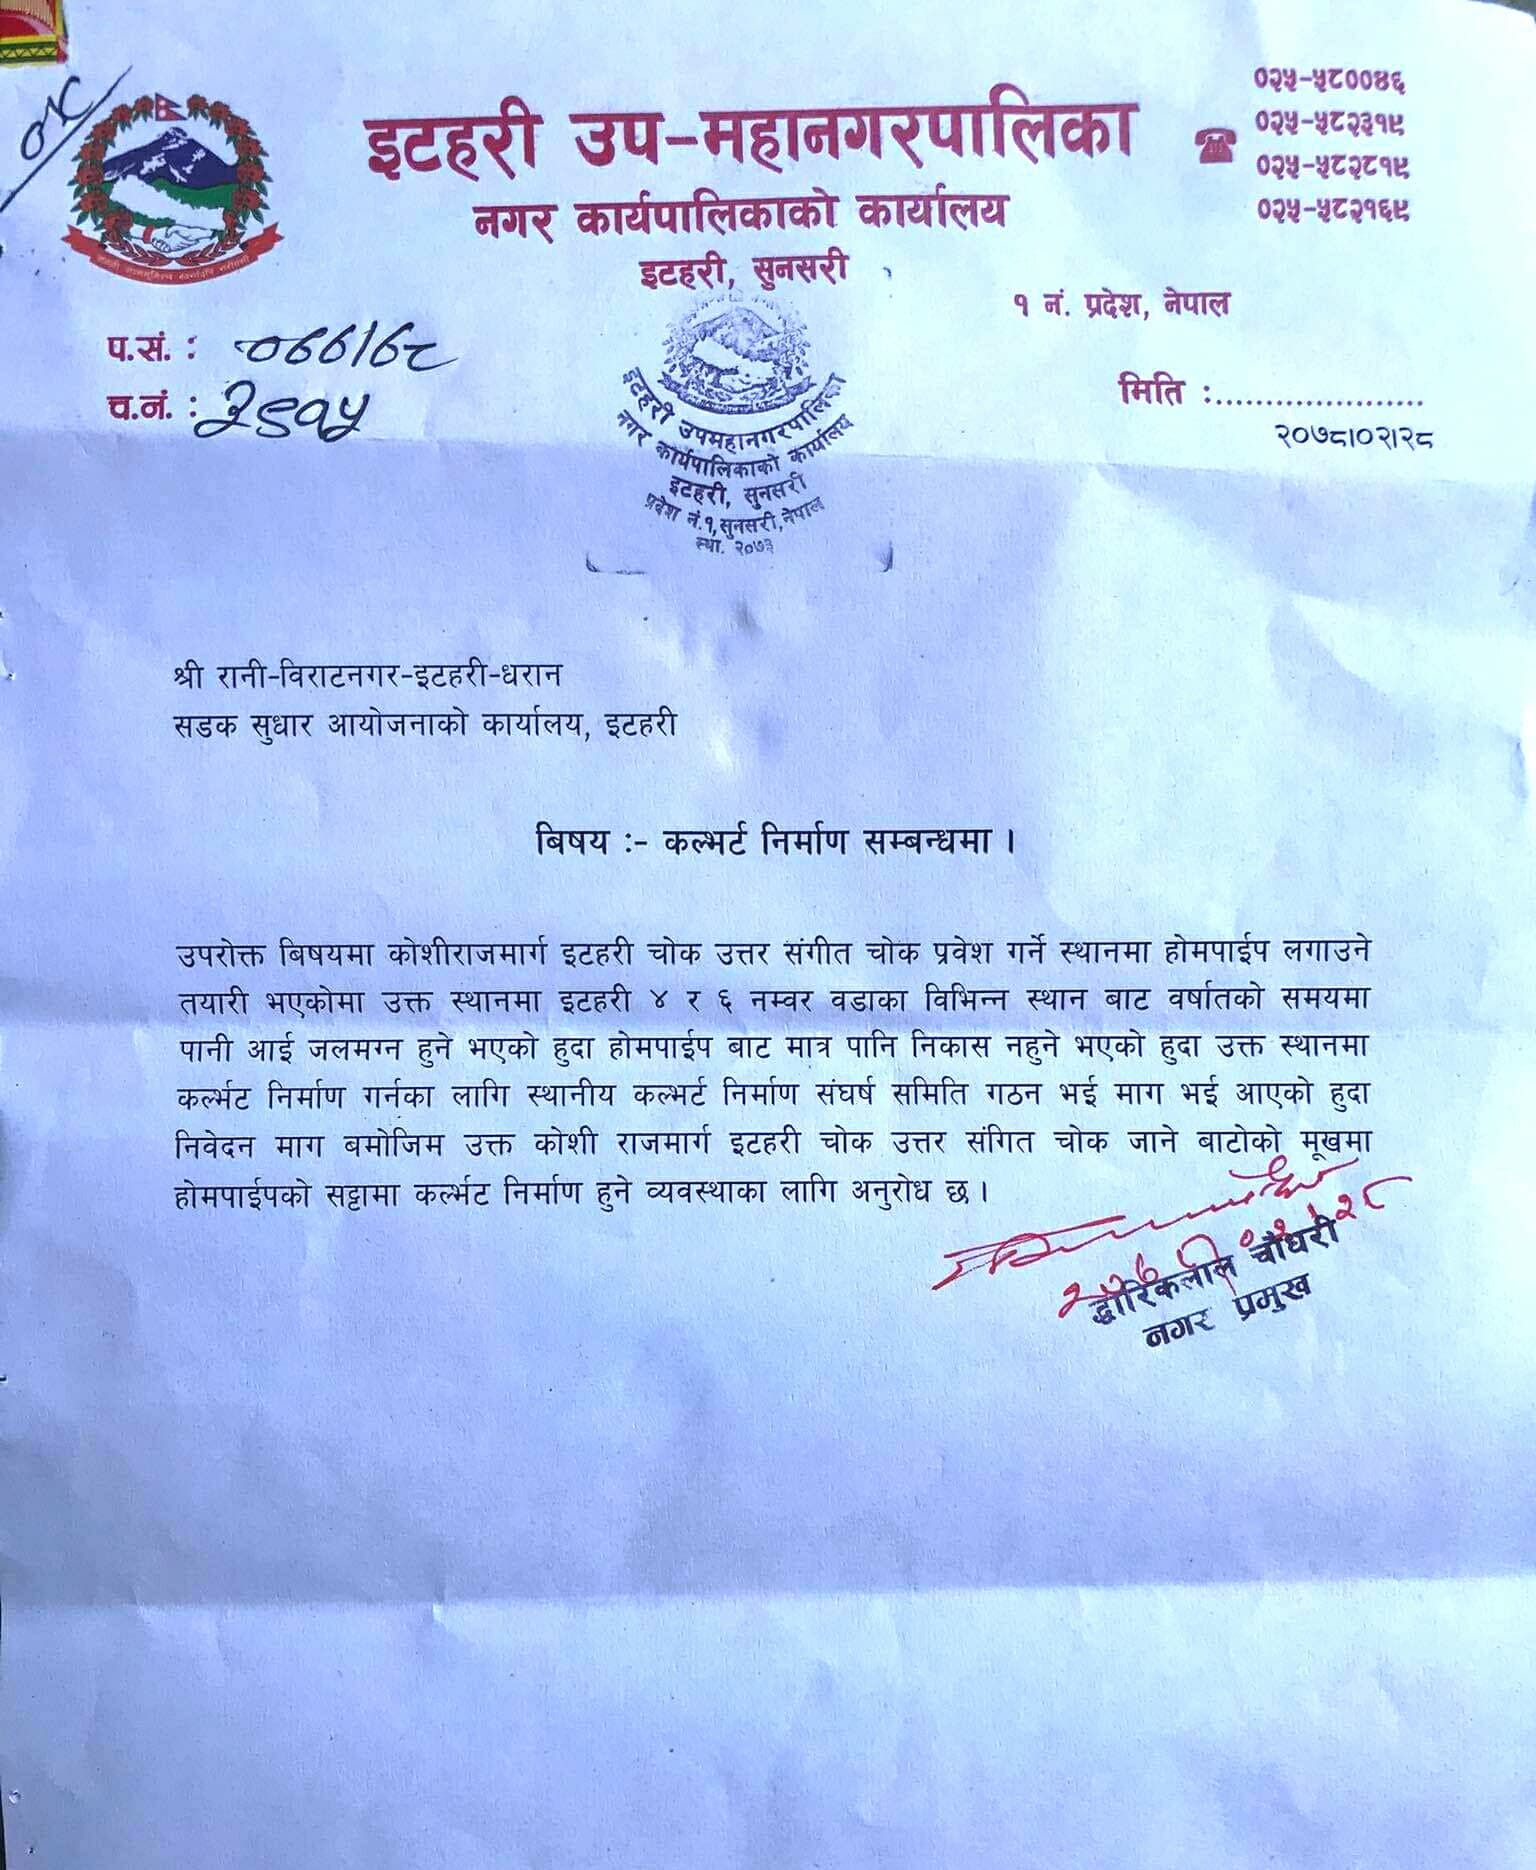 इटहरी उप-महानगरपालिका
नगर कार्यपालिकाको कार्यालय
इटहरी, सुनसरी
०२५-५८००४६
०२५-५८२३१९
०२५-५८२८१९
०२५-५८२१६९
१ नं. प्रदेश, नेपाल
प.सं. : ०७७/७८
च.नं. :
मिति :.....................
२०७८।०२।२८
इटहरी उपमहानगरपालिका
नगर कार्यपालिकाको कार्यालय
इटहरी, सुनसरी
प्रदेश नं.१,सुनसरी,नेपाल
स्था. २०७३
श्री रानी-विराटनगर-इटहरी-धरान
सडक सुधार आयोजनाको कार्यालय, इटहरी
बिषय :- कल्भर्ट निर्माण सम्बन्धमा ।
उपरोक्त बिषयमा कोशीराजमार्ग इटहरी चोक उत्तर संगीत चोक प्रवेश गर्ने स्थानमा होमपाईप लगाउने
तयारी भएकोमा उक्त स्थानमा इटहरी ४ र ६ नम्वर वडाका विभिन्न स्थान बाट वर्षातको समयमा
पानी आई जलमग्न हुने भएको हुदा होमपाईप बाट मात्र पानि निकास नहुने भएको हुदा उक्त स्थानमा
कर्ल्भट निर्माण गर्नका लागि स्थानीय कल्भर्ट निर्माण संघर्ष समिति गठन भई माग भई आएको हुदा
निवेदन माग बमोजिम उक्त कोशी राजमार्ग इटहरी चोक उत्तर संगित चोक जाने बाटोको मूखमा
होमपाईपको सट्टामा कर्ल्भट निर्माण हुने व्यवस्थाका लागि अनुरोध छ ।
द्धारिकलाल चौधरी
नगर प्रमुख